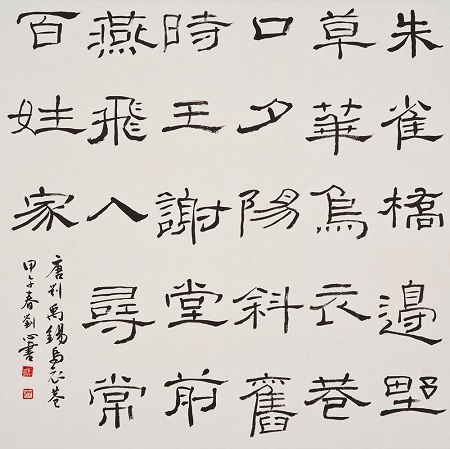 朱雀橋邊野
草華烏衣巷
口夕陽斜舊
時王謝堂前
燕飛入尋常
百姓家
唐刘禹錫烏衣巷
甲午春劉書